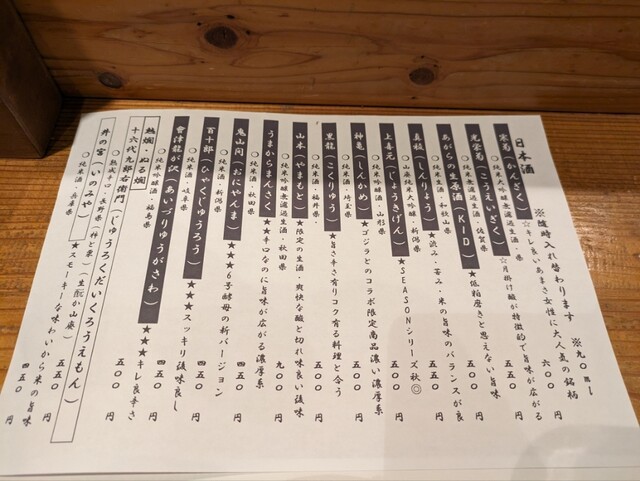 日本酒
※随時入れ替わります
※九〇ml
寒菊(かんぎく)
☆キレ良いあまさ女性に大人気の銘柄
○純米大吟醸無濾過生酒・
六〇〇円
光栄菊(こうえいぎく)
☆月掛け酸が特徴的で旨味が広がる
○純米無濾過生酒・佐賀県
五五〇円
あがらの生原酒(KID)
★低粕磨きと思えない旨味
○純米生酒・和歌山県
五五〇円
真稜(しんりょう)
★渋み・苦み・米の旨味のバランスが良
○山廃純米大吟醸・新潟県
五五〇円
上喜元(じょうきげん)
★SEASONシリーズ秋◎
○純米吟醸・山形県
五〇〇円
神亀(しんかめ)
★ゴジラとのコラボ限定商品濃い濃厚系
○純米酒・埼玉県
五〇〇円
黒龍(こくりゅう)
★旨さ辛さ有りコク有る料理と合う
○純米酒・福井県・
五〇〇円
山本(やまもと)
★限定の生酒・爽快な酸と切れ味良い後味
○純米吟醸無濾過生酒・秋田県
五〇〇円
うまからまんさく
★★辛口なのに旨味が広がる濃厚系
○純米酒・秋田県
九〇〇円
鬼山間(おにやんま)
★★★6号酵母の新バージョン
○純米酒・新潟県
四五〇円
百十郎(ひゃくじゅうろう)
★★★スッキリ後味良し
○純米酒・岐阜県
四五〇円
會津龍が沢(あいづりゅうがさわ)
★★★キレ良辛さ
○純米吟醸酒・福島県
五〇〇円
熱燗・ぬる燗
十六代九郎右衛門(じゅうろくだいくろうえもん)
○熟成辛口・長野県(柿と栗)(生酛か山廃)
五五〇円
井の宮(いのみや)
★スモーキーな味わいから米の旨味
○純米酒・兵庫県
四五〇円